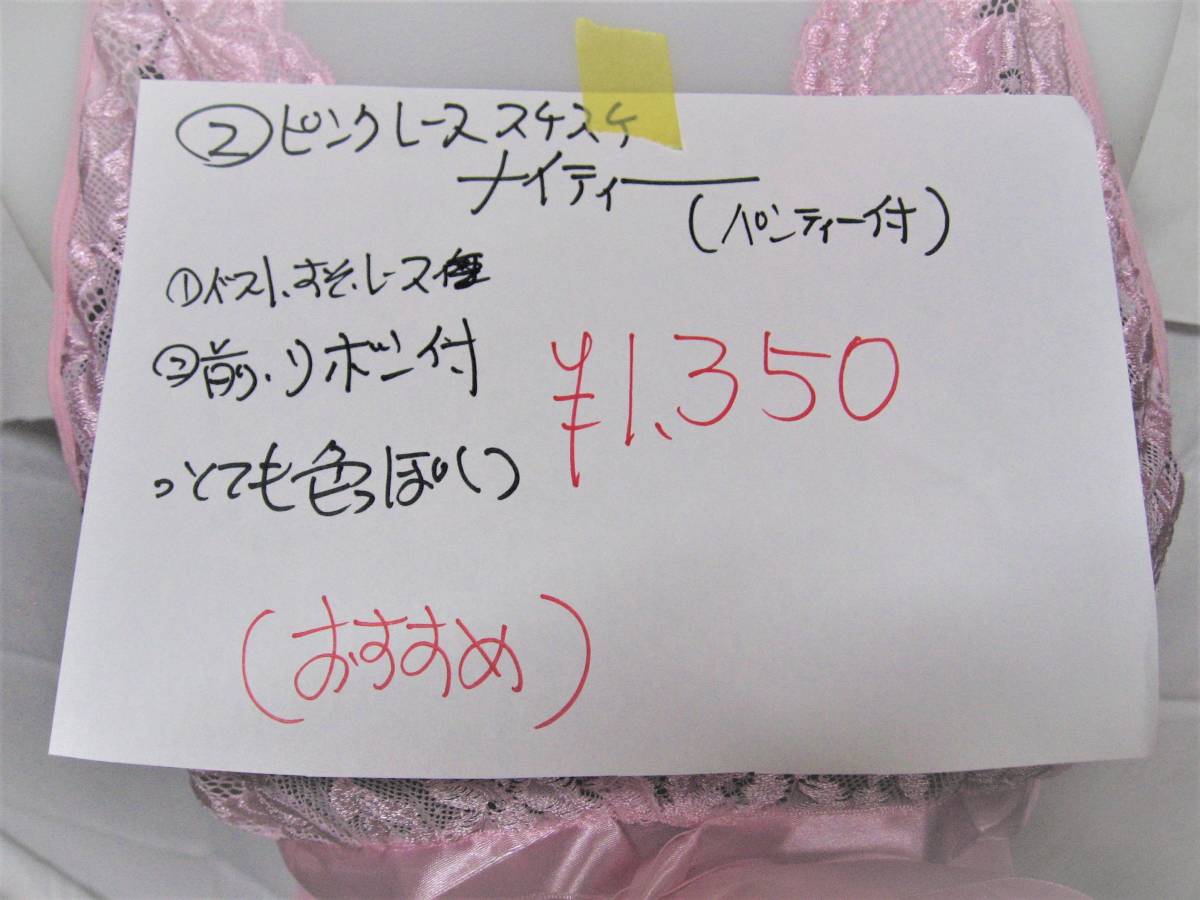 ②ピンクレーススケスケ
ナイティー
(パンティー付)
①バスト、すそ、レース
②前、リボン付
¥1,350
とても色っぽい
(おすすめ)